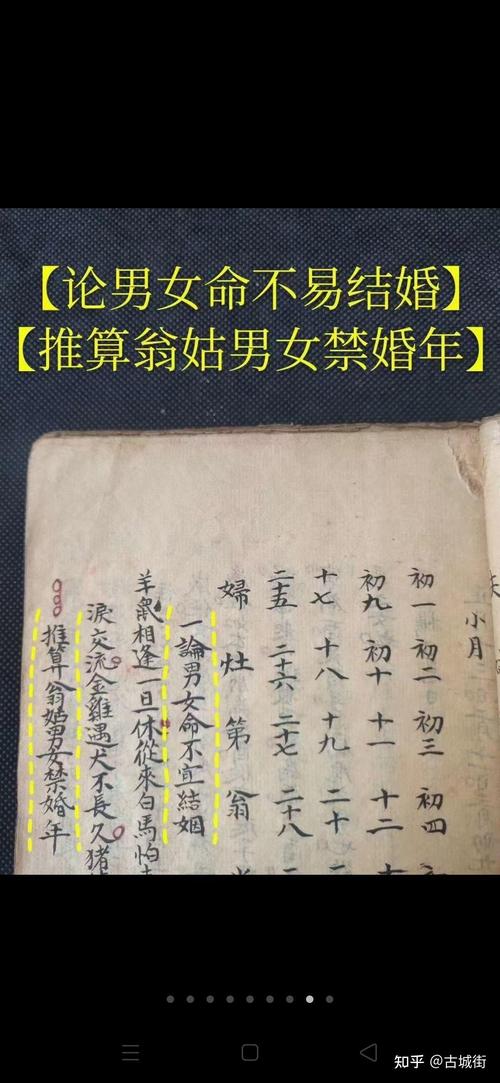 【论男女命不易结婚】
【推算翁姑男女禁婚年】
小月
初一 初二 初三 初四
初九 初十 十一 十二
十七 十八 十九 二十
二十五 二十六 二十七 二十八
婦 灶 第 翁
一論男女命不宜結姻
羊鼠相逢一旦休從來白馬怕
淚交流金雞遇犬不長久猪
推算翁姑男女禁婚年
知乎 @古城街